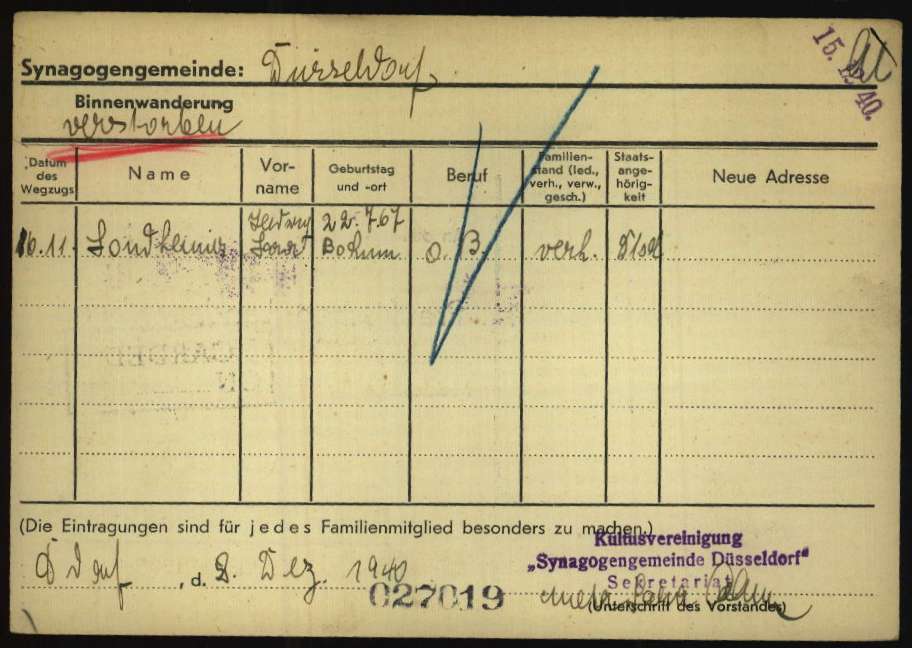 15. 12. 40.
Synagogengemeinde: Düsseldorf
Binnenwanderung
verstorben
Datum des Wegzugs
Name
Vor-name
Geburtstag und -ort
Beruf
Familien-stand (led., verh., verw., gesch.)
Staats-ange-hörig-keit
Neue Adresse
16.11. Sondheimer Hedwig Sara 22.7.67 Bochum o. B. verh. Dtsch
(Die Eintragungen sind für jedes Familienmitglied besonders zu machen.)
Kultusvereinigung
„Synagogengemeinde Düsseldorf"
Sekretariat
Ddorf, d. 2. Dez. 1940
027019
(Unterschrift des Vorstandes)